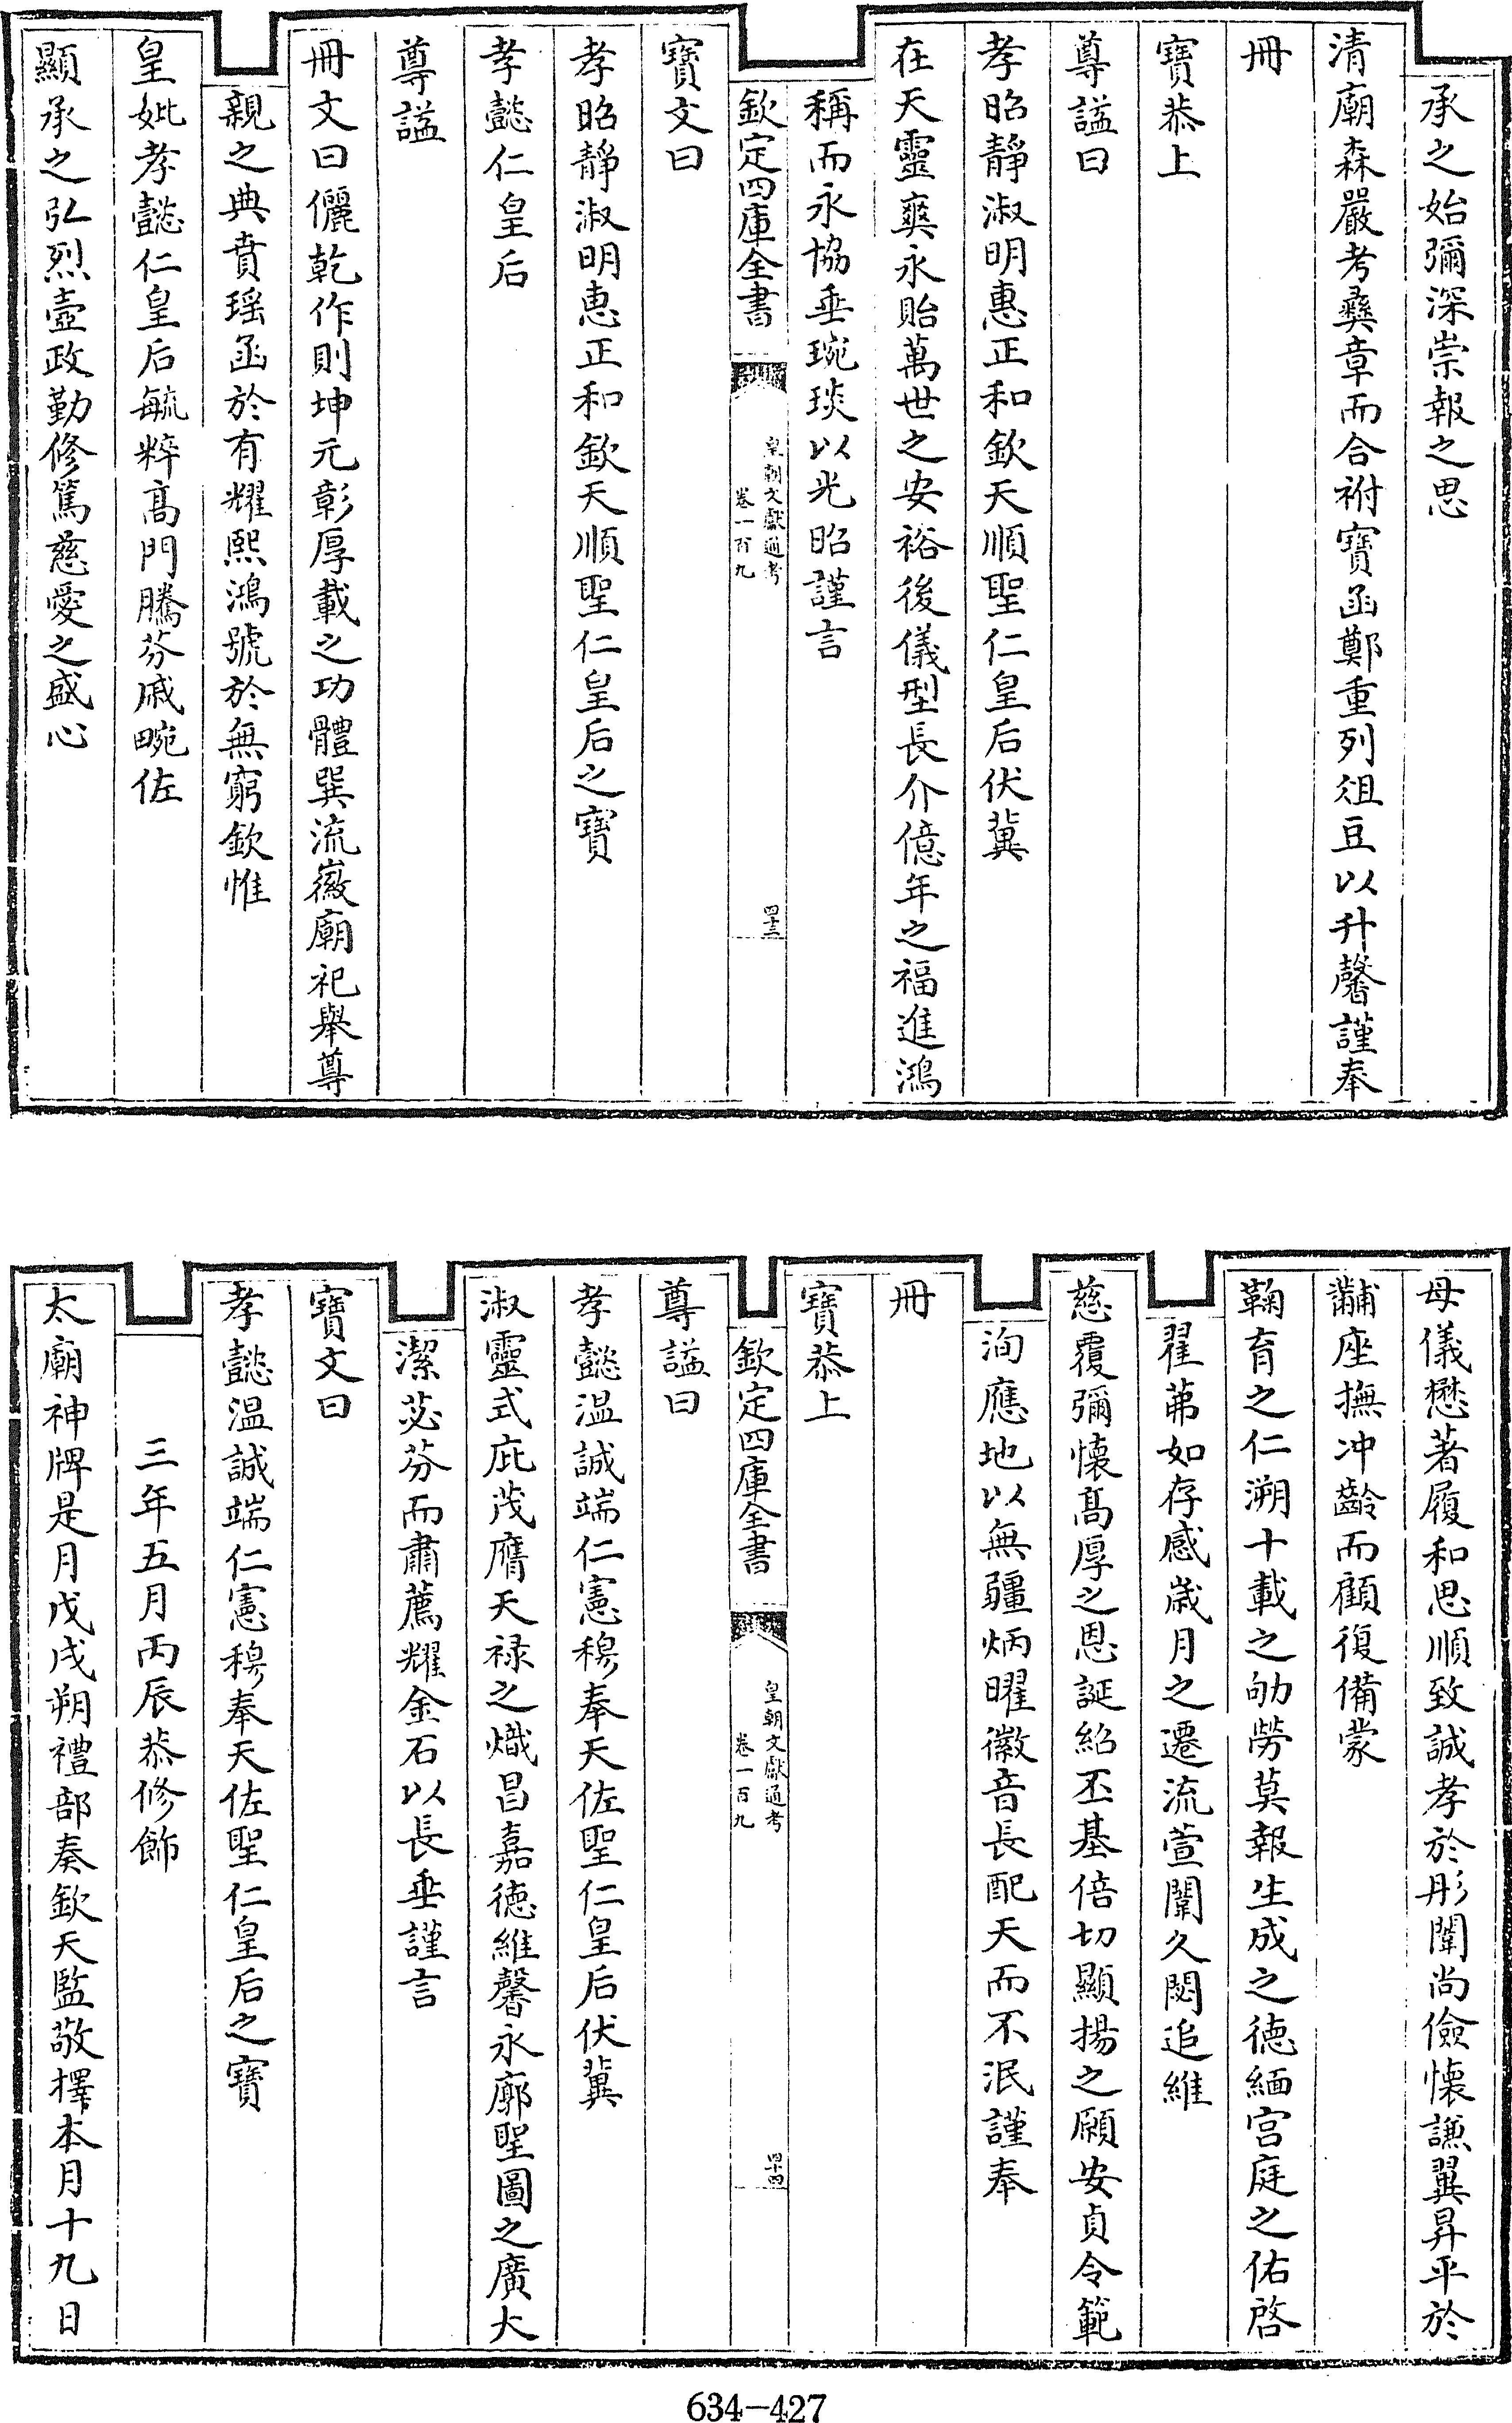 承之始彌深崇報之思
清廟森嚴考彝章而合祔寶函鄭重列俎豆以升馨謹奉
冊
寶恭上
尊諡曰
孝昭靜淑明惠正和欽天順聖仁皇后伏冀
在天靈爽永貽萬世之安裕後儀型長介億年之福進鴻
稱而永協垂琬琰以光昭謹言
欽定四庫全書
皇朝文獻通考
卷一百九
四十三
寶文曰
孝昭靜淑明惠正和欽天順聖仁皇后之寶
孝懿仁皇后
尊諡
冊文曰儷乾作則坤元彰厚載之功體巽流徽廟祀舉尊
親之典賁瑶函於有耀熙鴻號於無窮欽惟
皇妣孝懿仁皇后毓粹髙門騰芬戚畹佐
顯承之弘烈壼政勤修篤慈愛之盛心
母儀懋著履和思順致誠孝於彤闈尚儉懷謙翼昇平於
黼座撫冲齡而顧復備蒙
鞠育之仁溯十載之劬勞莫報生成之德緬宫庭之佑啓
翟茀如存感歲月之遷流萱闈久閟追維
慈覆彌懷髙厚之恩誕紹丕基倍切顯揚之願安貞令範
洵應地以無疆炳曜徽音長配天而不泯謹奉
冊
寶恭上
欽定四庫全書
皇朝文獻通考
卷一百九
四十四
尊諡曰
孝懿温誠端仁憲穆奉天佐聖仁皇后伏冀
淑靈式庇茂膺天禄之熾昌嘉德維馨永廓聖圖之廣大
潔苾芬而肅薦耀金石以長垂謹言
寶文曰
孝懿温誠端仁憲穆奉天佐聖仁皇后之寶
三年五月丙辰恭修飾
太廟神牌是月戊戌朔禮部奏欽天監敬擇本月十九日
634-427